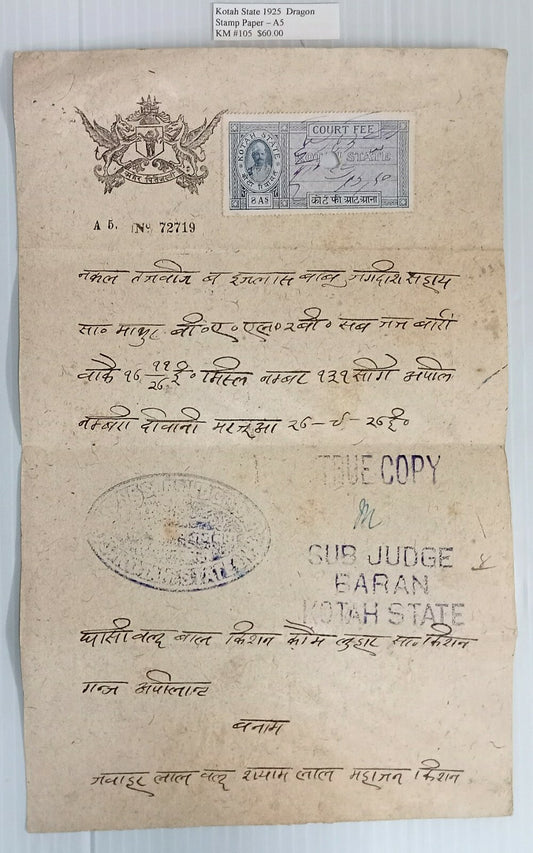 Kotah State 1925 Dragon
Stamp Paper – A5
KM #105 $60.00
COURT FEE
KOTAH STATE
KOTAH STATE
8 AS
कोर्ट फी आठ आना
A 5. No 72719
नकल तजवीज ब इजलास बाबू जगदीश सहाय
सा० माथुर बी० ए० एल० एल० बी० सब जज बारां
वाकै १६ ११/२६ ई० मिस्ल नम्बर १३१ सीगे अपील
नम्बरी दीवानी मरजूआ २६-८-२६ ई०
TRUE COPY
SUB JUDGE
BARAN
KOTAH STATE
घासी वल्द बाल किशन कौम लुहार सा० किशन
गन्ज अपीलान्ट
बनाम
जवाहर लाल वल्द शयाम लाल महाजन किशन